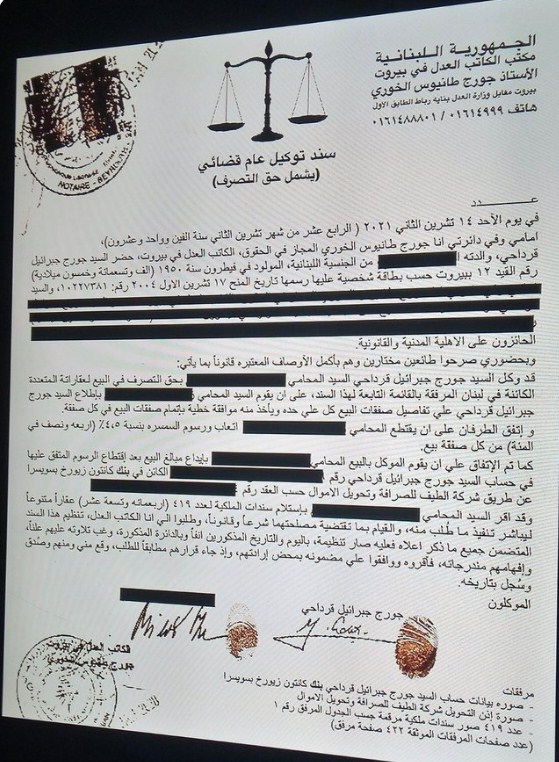 الجمهورية اللبنانية
مكتب الكاتب العدل في بيروت
الأستاذ جورج طانيوس الخوري
بيروت مقابل وزارة العدل بنايه رباط الطابق الاول
هاتف ٠١٦١٤٩٩٩ / ٠١٦١٤٨٨٨٠١
سند توكيل عام قضائي
(يشمل حق التصرف)
NOTAIRE - BEYROUTH
عدد
في يوم الأحد ١٤ تشرين الثاني ٢٠٢١ ( الرابع عشر من شهر تشرين الثاني سنة الفين وواحد وعشرون)،
امامي وفي دائرتي انا جورج طانيوس الخوري المجاز في الحقوق، الكاتب العدل في بيروت، حضر السيد جورج جبرائيل
قرداحي، والدته من الجنسية اللبنانية، المولود في فيطرون سنة ١٩٥٠ (الف وتسعمائة وخمسون ميلادية)
رقم القيد ١٢ بيروت حسب بطاقة شخصية عليها رسمها تاريخ المنح ١٧ تشرين الاول ٢٠٠٤ رقم: ١٠٢٢٧٣٨١، والسيد
الحائزون على الاهلية المدنية والقانونية.
وبحضوري صرحوا طائعين مختارين وهم بأكمل الأوصاف المعتبره قانوناً بما يأتي:
قد وكل السيد جورج جبرائيل قرداحي السيد المحامي بحق التصرف في البيع لعقاراتة المتعددة
الكائنة في لبنان المرفقة بالقائمة التابعة لهذا السند، على ان يقوم السيد المحامي بإطلاع السيد جورج
جبرائيل قرداحي علي تفاصيل صفقات البيع كل علي حده ويأخذ منه موافقة خطية بإتمام صفقات البيع في كل صفقة.
و إتفق الطرفان على ان يقتطع المحامي اتعاب ورسوم السمسره بنسبة ٤،٥٪ (اربعه ونصف في
المئة) من كل صفقة بيع.
كما تم الإتفاق علي ان يقوم الموكل بالبيع المحامي بإيداع مبالغ البيع بعد إقتطاع الرسوم المتفق عليها
في حساب السيد جورج جبرائيل قرداحي رقم الكائن في بنك كانتون زيورخ بسويسرا
عن طريق شركة الطيف للصرافة وتحويل الاموال حسب العقد رقم
وقد اقر السيد المحامي بإستلام سندات الملكية لعدد ٤١٩ (اربعمائه وتسعة عشر) عقاراً متنوعاً
ليباشر تنفيذ ما طلب منه، والقيام بما تقتضية مصلحتهما شرعاً وقانوناً، وطلبوا الي انا الكاتب العدل، تنظيم هذا السند
المتضمن جميع ما ذكر اعلاه فعليه صار تنظيمة، باليوم والتاريخ المذكورين انفاً وبالدائرة المذكورة، وغب تلاوته عليهم علناً،
وإفهامهم مندرجاته، فأقروه ووافقوا علي مضمونه بمحض إرادتهم، وإذ جاء قرارهم مطابقاً للطلب، وقع مني ومنهم وصدق
وسجل بتاريخه.
الموكلون
جورج جبرائيل قرداحي
الكاتب العدل في بيروت
جورج طانيوس الخوري
مرفقات
- صوره بيانات حساب السيد جورج جبرائيل قرداحي بنك كانتون زيورخ بسويسرا
- صورة إذن التحويل شركة الطيف للصرافة وتحويل الاموال
- عدد ٤١٩ صور سندات ملكية مرقمة حسب الجدول المرفق رقم ١
(عدد صفحات المرفقات الموثقة ٤٢٢ صفحة مرفق)